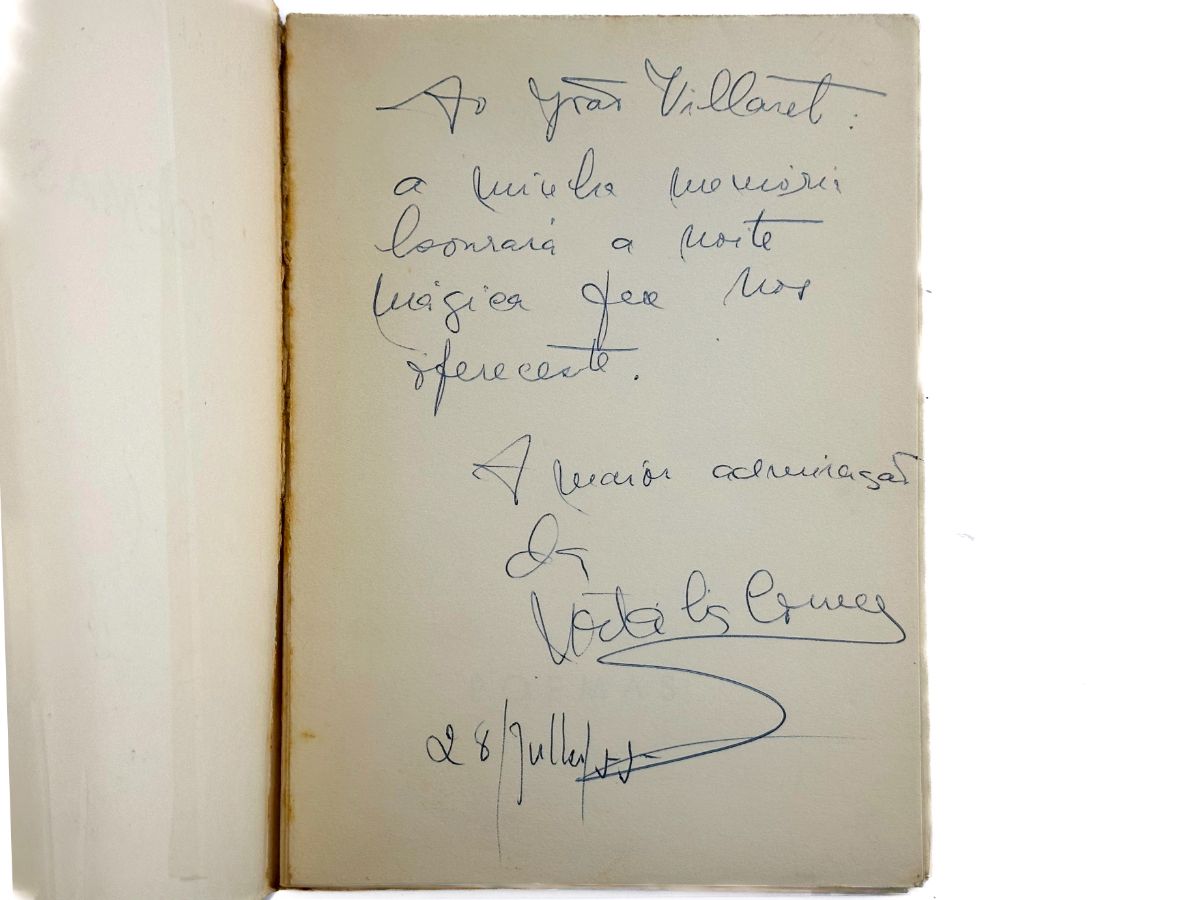 Ao João Villaret:
a minha memória
honrará a noite
mágica que nos
ofereceste.
A maior admiração
da
Natália Correia
28/Julho/55